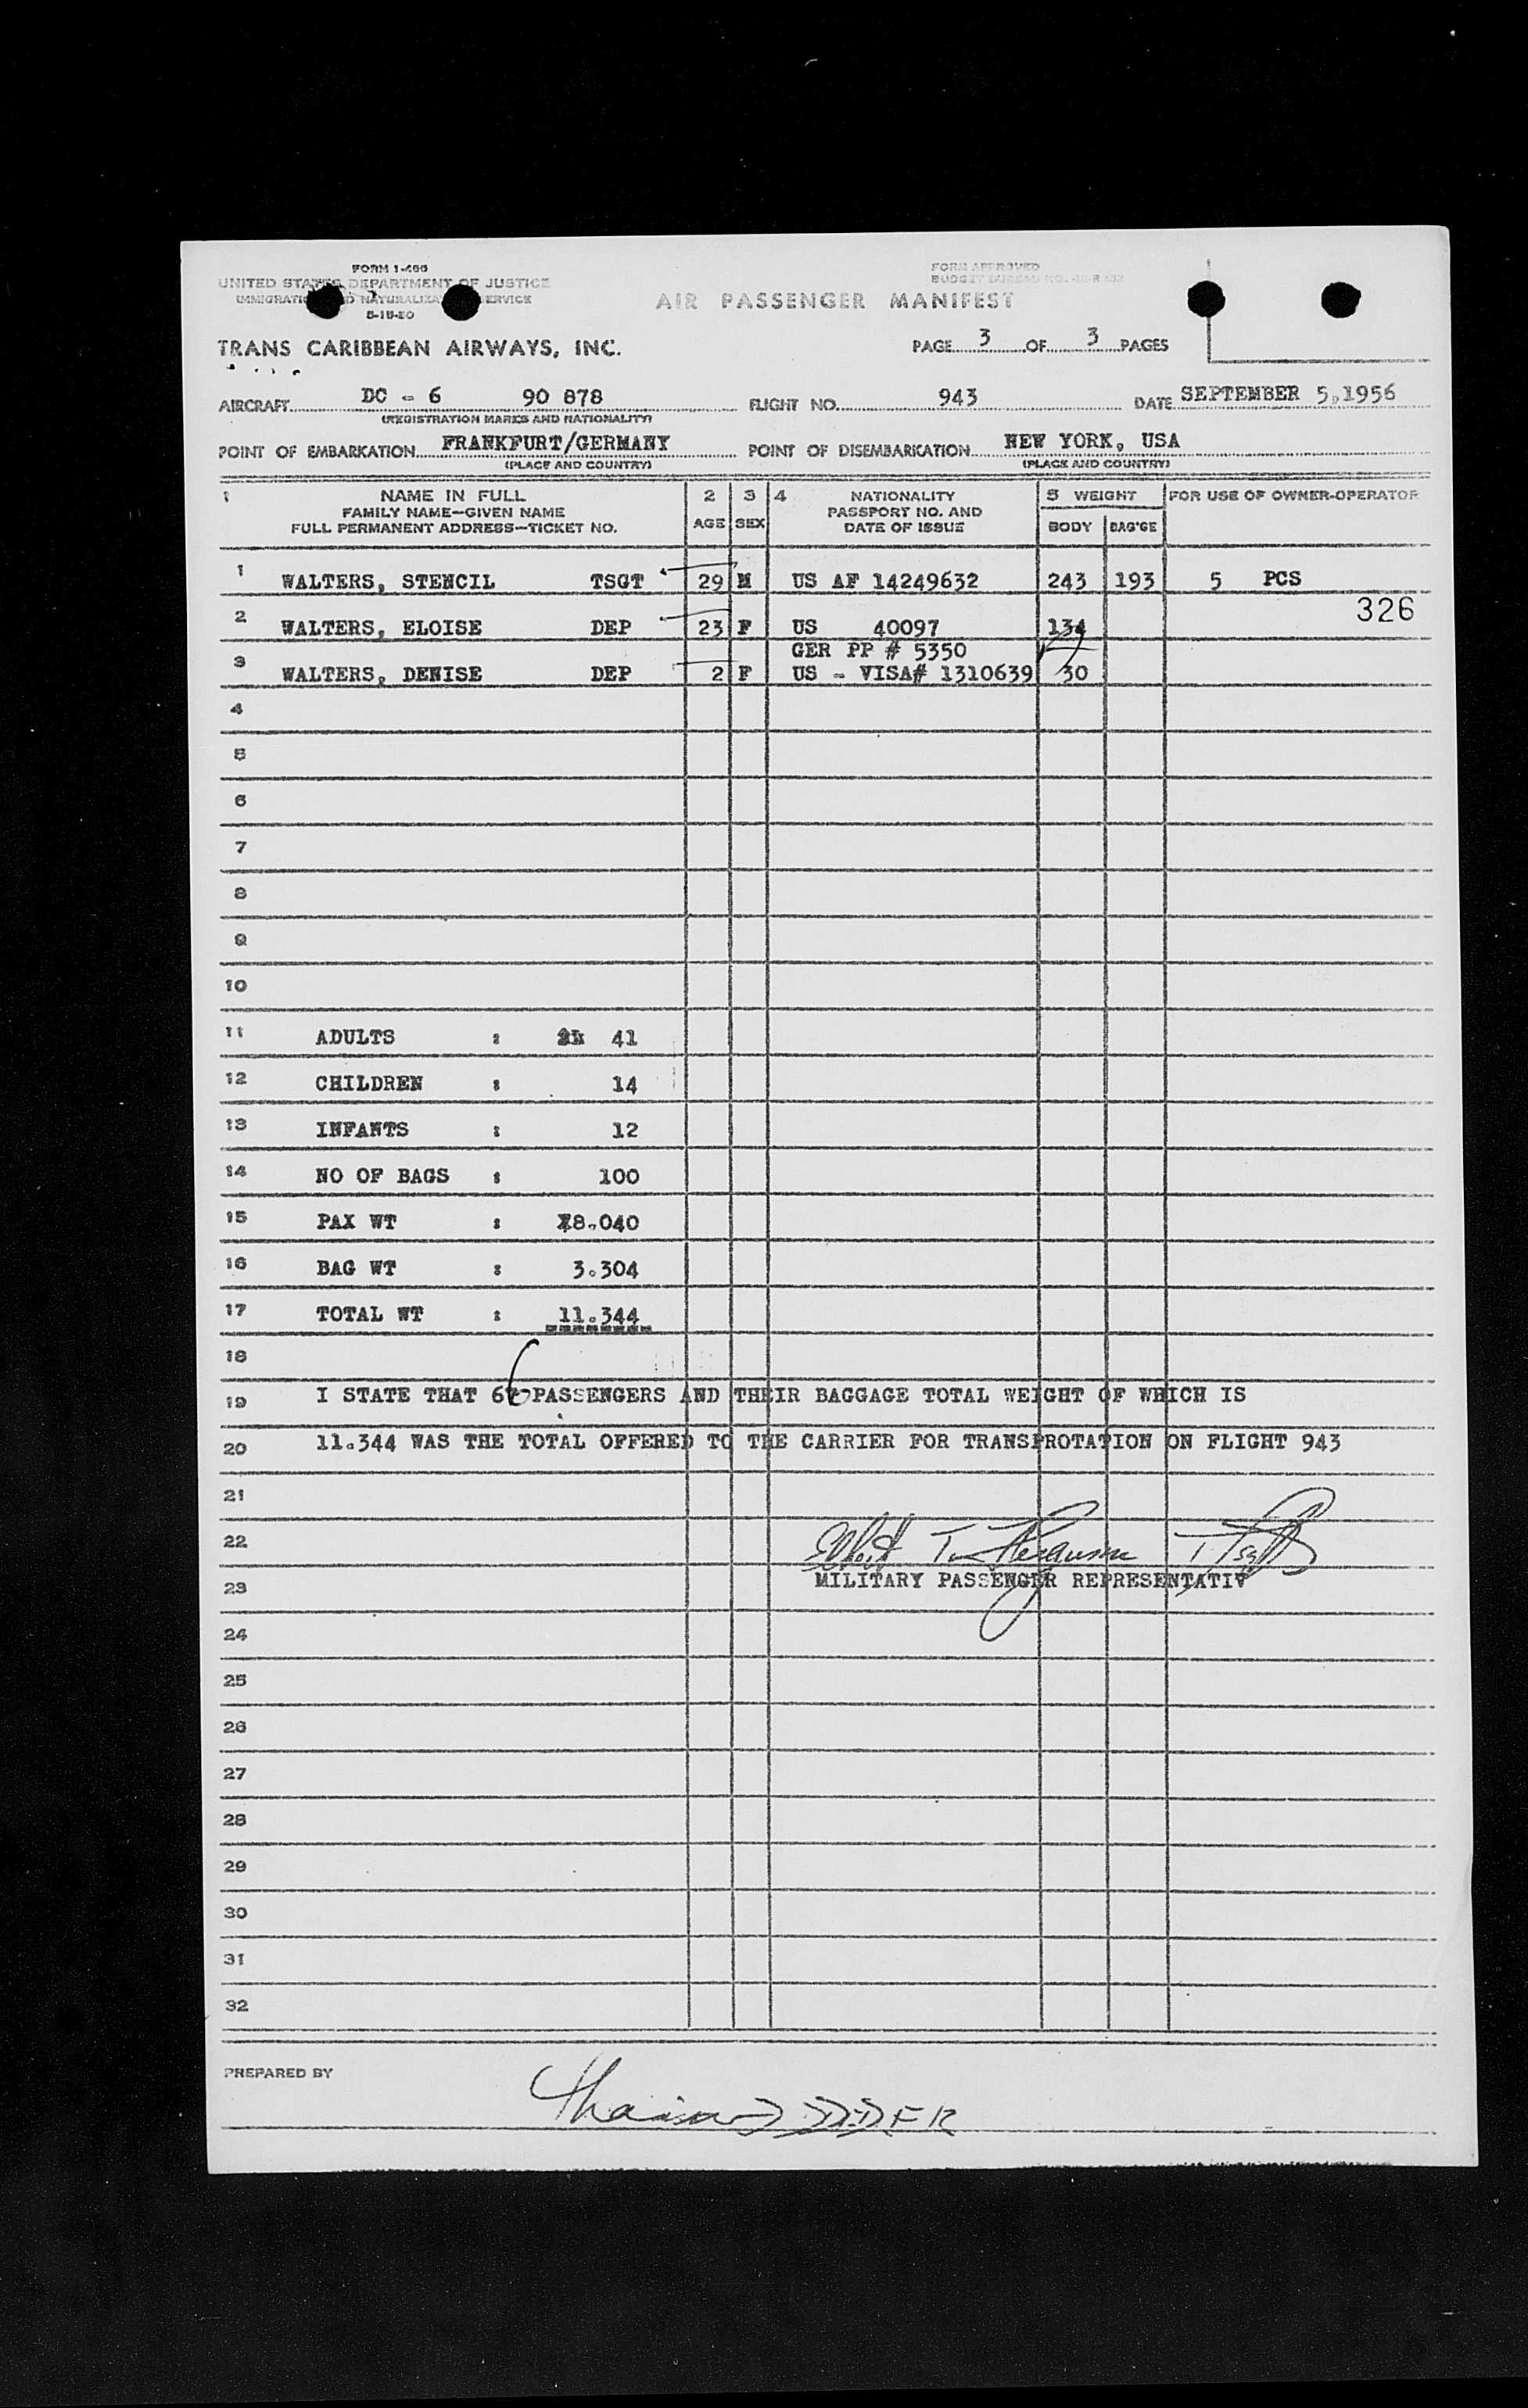 FORM I-466
UNITED STATES DEPARTMENT OF JUSTICE
IMMIGRATION AND NATURALIZATION SERVICE
FORM APPROVED
BUDGET BUREAU NO.
AIR PASSENGER MANIFEST
TRANS CARIBBEAN AIRWAYS, INC.
PAGE 3 OF 3 PAGES
AIRCRAFT DC - 6 90 878 FLIGHT NO. 943 DATE SEPTEMBER 5,1956
(REGISTRATION MARKS AND NATIONALITY)
POINT OF EMBARKATION FRANKFURT/GERMANY POINT OF DISEMBARKATION NEW YORK, USA
(PLACE AND COUNTRY) (PLACE AND COUNTRY)
1 NAME IN FULL 2 3 4 NATIONALITY 5 WEIGHT FOR USE OF OWNER-OPERATOR
FAMILY NAME—GIVEN NAME AGE SEX PASSPORT NO. AND BODY BAG'GE
FULL PERMANENT ADDRESS—TICKET NO. DATE OF ISSUE
1 WALTERS, STENCIL TSGT 29 M US AF 14249632 243 193 5 PCS
326
2 WALTERS, ELOISE DEP 23 F US 40097 134
GER PP # 5350
3 WALTERS, DENISE DEP 2 F US - VISA# 1310639 30
4
5
6
7
8
9
10
11 ADULTS : 41
12 CHILDREN : 14
13 INFANTS : 12
14 NO OF BAGS : 100
15 PAX WT : 8.040
16 BAG WT : 3.304
17 TOTAL WT : 11.344
18
19 I STATE THAT PASSENGERS AND THEIR BAGGAGE TOTAL WEIGHT OF WHICH IS
20 11.344 WAS THE TOTAL OFFERED TO THE CARRIER FOR TRANSPROTATION ON FLIGHT 943
21
22 Ferguson T/Sgt
23 MILITARY PASSENGER REPRESENTATIV
24
25
26
27
28
29
30
31
32
PREPARED BY